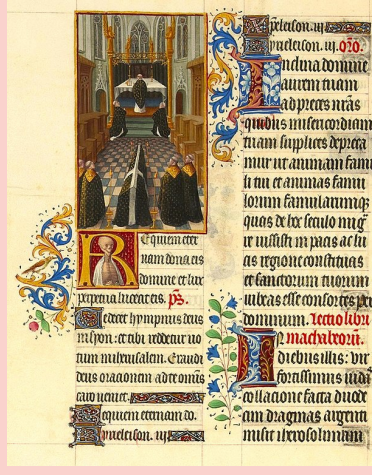 Requiem eter
nam dona eis
domine et lux
perpetua luceat eis. ps.
Te decet hympnus deus
in syon: et tibi reddetur uo
tum in iherusalem. Exaudi
deus orationem ad te omnis
caro ueniet.
Requiem eternam do.
Kyrieleison. iij
Xpeleison. iij
Kyrieleison. iij. oro.
Inclina domine
aurem tuam
ad preces nras
quibus misericordiam
tuam supplices depreca
mur ut animam famu
li tui et animas famu
lorum famularumque
quas de hoc seculo migra
re iussisti in pacis ac lu
cis regione constituas
et sanctorum tuorum
iubeas esse consortes per
dominum. Lectio libri
machabeorum.
In diebus illis: vir
fortissimus iudas
collacione facta duode
cim dragmas argenti
misit iherosolimam